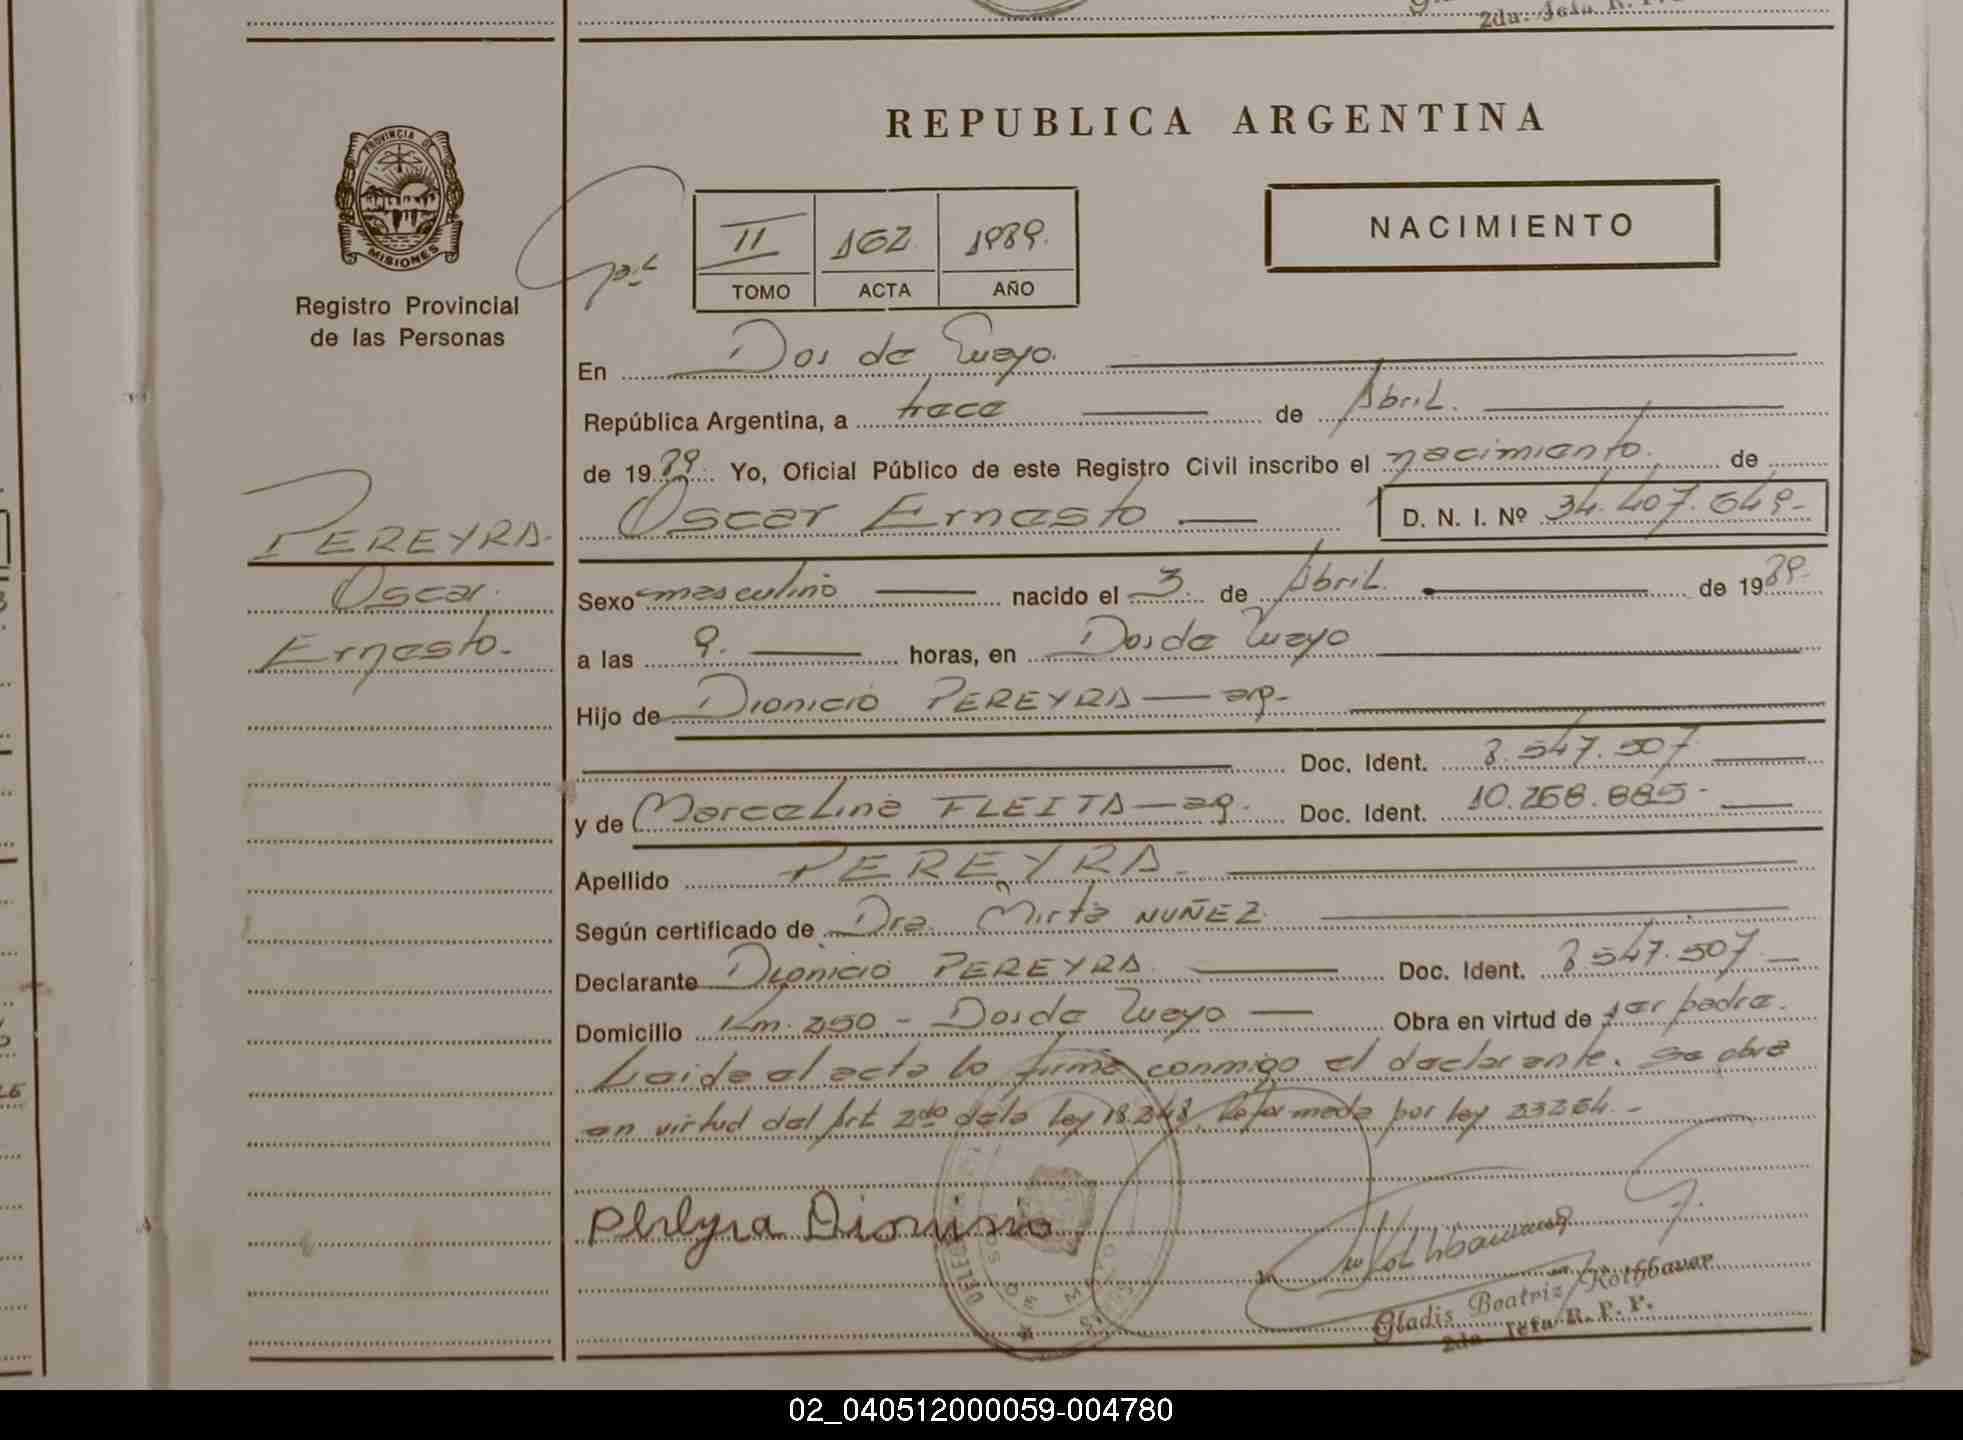 2da. Jefa R. P. P.
REPUBLICA ARGENTINA
PROVINCIA DE
MISIONES
Registro Provincial
de las Personas
II 162 1989.
TOMO ACTA AÑO
NACIMIENTO
En Dos de Mayo.
República Argentina, a trece de Abril.
de 1989. Yo, Oficial Público de este Registro Civil inscribo el nacimiento. de
PEREYRA.
Oscar Ernesto D. N. I. Nº 34.407.649-
Oscar.
Ernesto.
Sexo masculino nacido el 3. de Abril. de 1989.
a las 9. horas, en Dos de Mayo
Hijo de Dionicio PEREYRA — arg-
Doc. Ident. 8.547.507
y de Marcelina FLEITA — arg. Doc. Ident. 10.268.885-
Apellido PEREYRA.
Según certificado de Dra. Mirta NUÑEZ.
Declarante Dionicio PEREYRA. Doc. Ident. 8.547.507 —
Domicilio Km. 250 - Dos de Mayo — Obra en virtud de ser padre.
Leida el acta la firma conmigo el declarante. Se obra
en virtud del Art 2do de la ley 18.248, Reformada por ley 23264.-
Pereyra Dionisio
Gladis Beatriz Rothbauer
2da Jefa R. P. P.
02_040512000059-004780